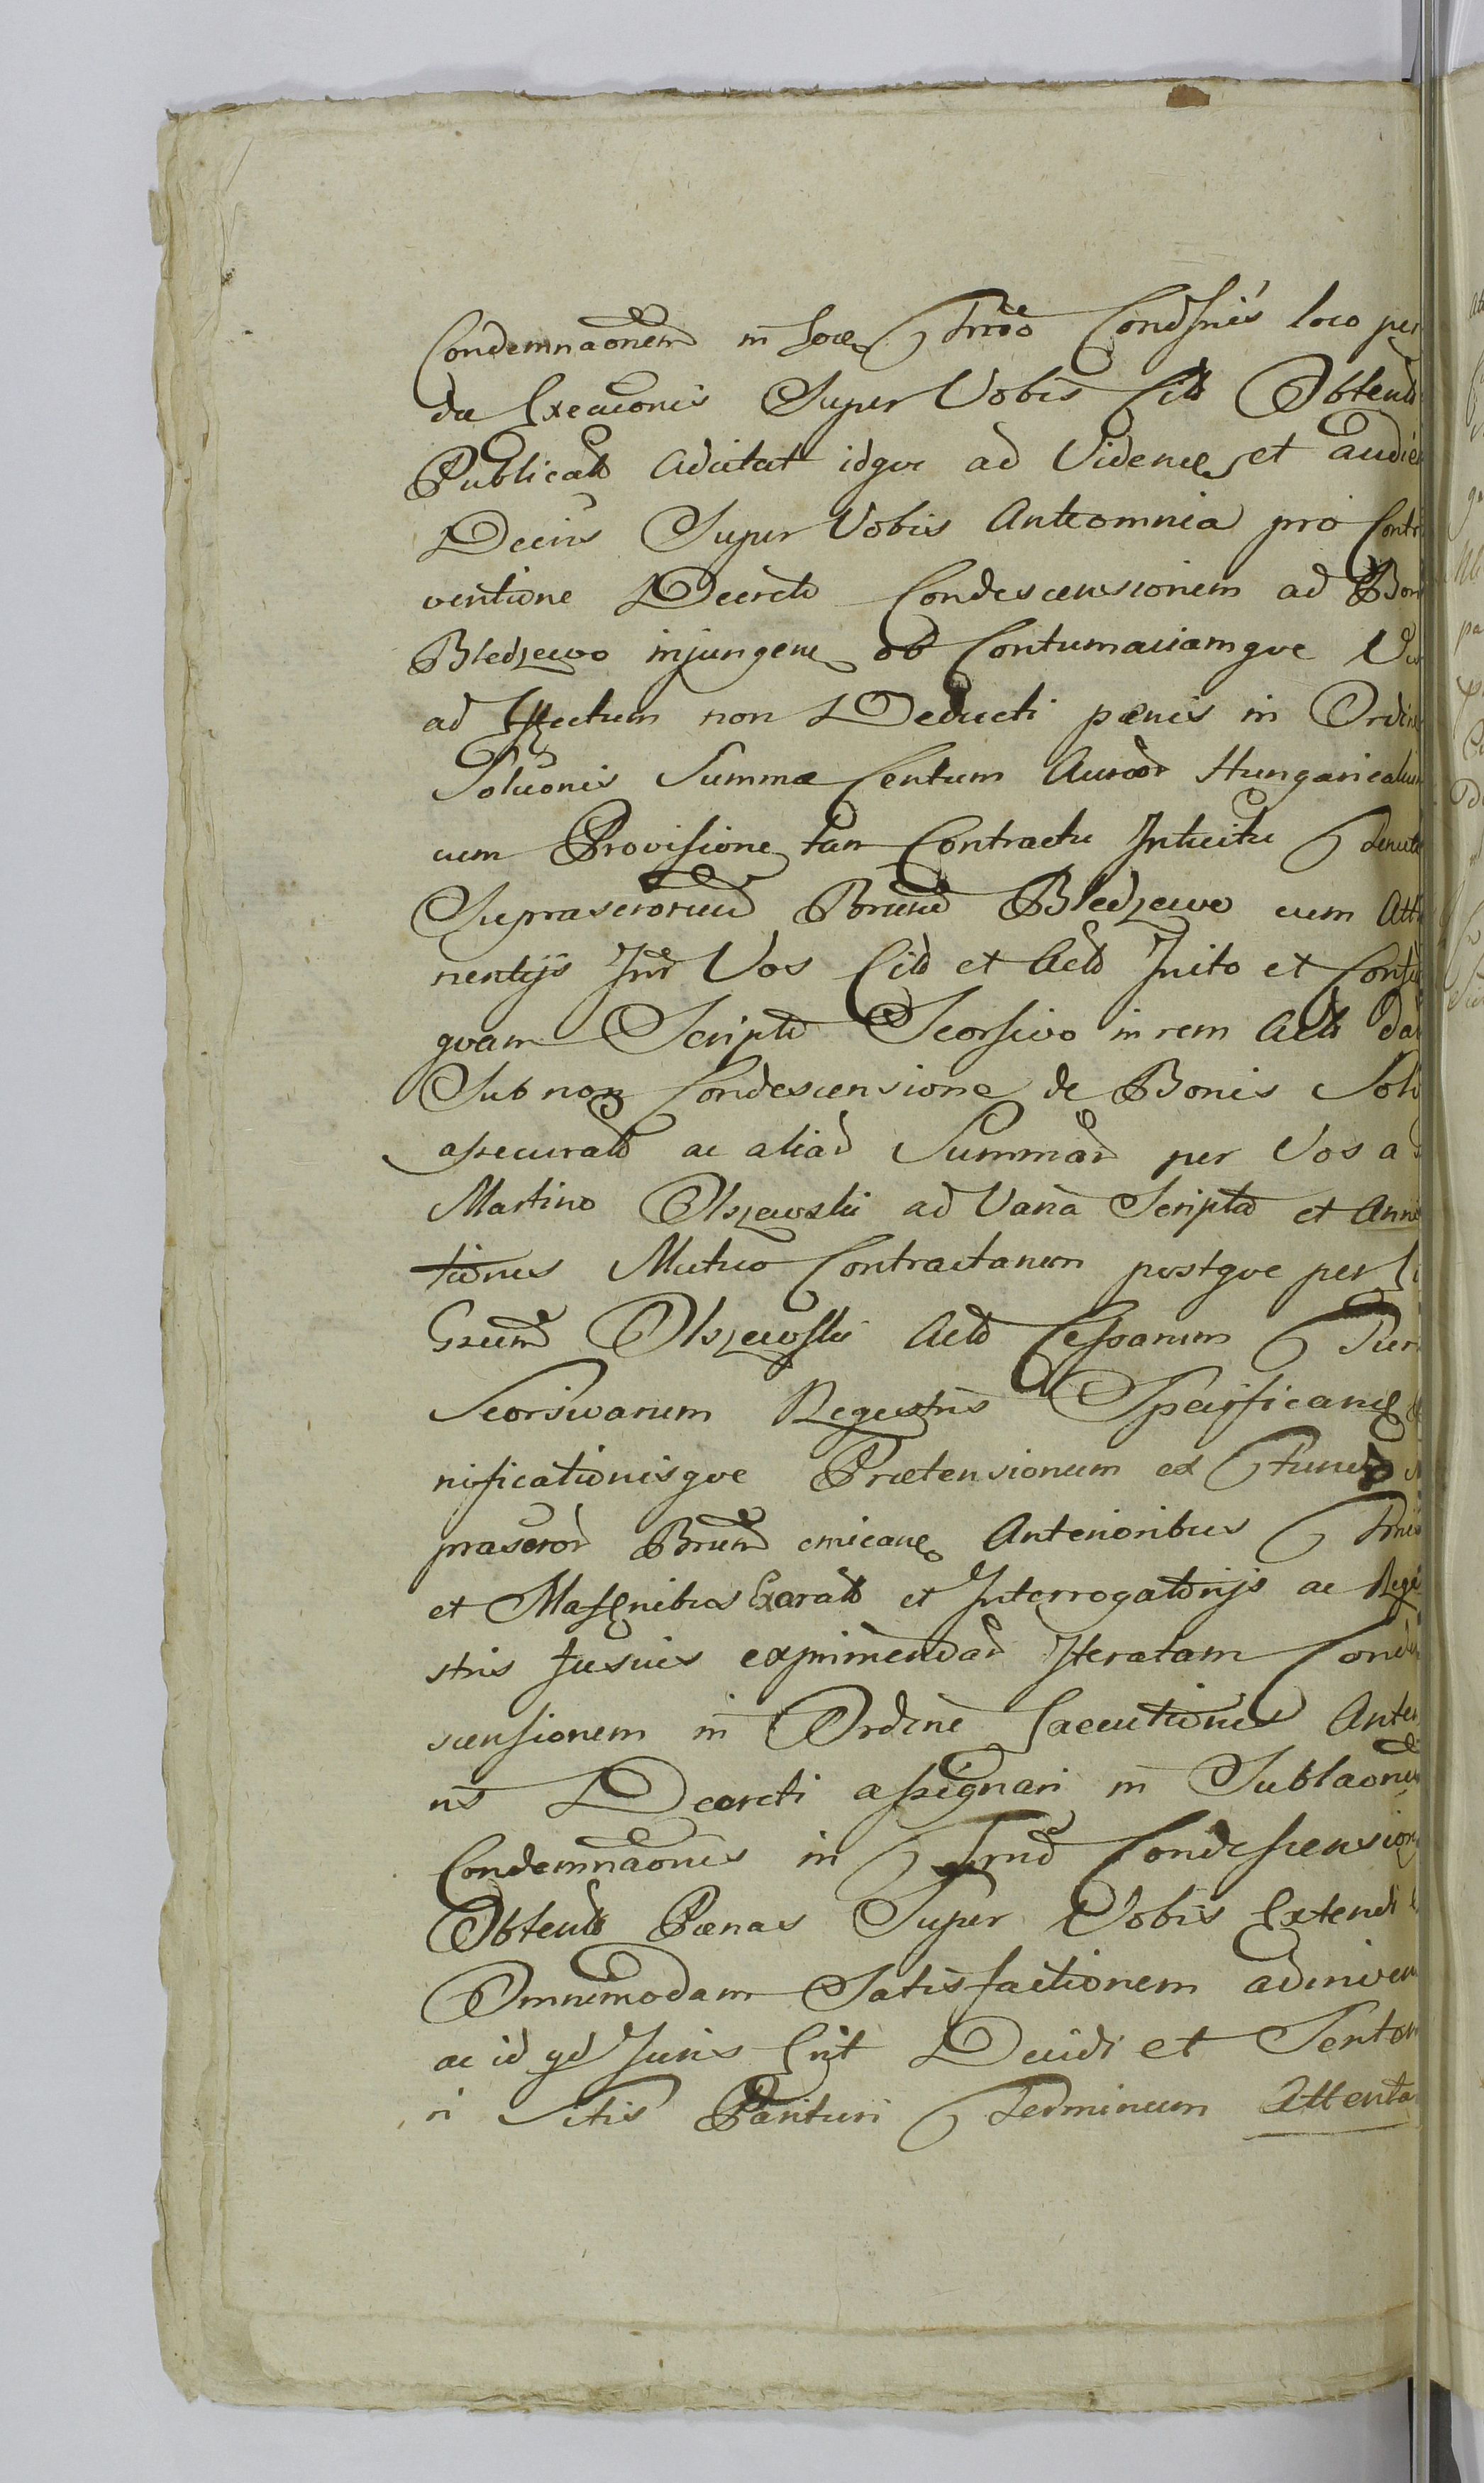 Condemnaonem in hoce Trmo Condsnis loco per
da Execuonis Super Vobis Cits Obtents
Publicats adcitat idque ad Videndes et audien
Decrs Super Vobis Anteomnia pro Contr
ventione Decreto Condescensionem ad Bon
Bledzewo injungen ob Contumaciamque V
ad Effectum non Deducti pænis in Ordine
Soluonis Summæ Centum Auror Hungaricaliu
cum Provisione tam Contractu Intuitu Tenute
Suprascrorum Bnrum Bledzewo cum Atti
nentijs Intr Vos Cits et Acts Inito et Confe
quam Scripto Seorsivo in rem Acts dat
Sub non Condescensione de Bonis Solu
assecurats ac aliar Summar per Vos a
Martino Olszewski ad Varia Scripta et Anno
tiones Mutuo Contractarum postque per
Gsum Olszewski Acts Cessarum Tum
Seorsivarum Regestris Specificand
nificationisque Prætensionum ex Tenuta
prascror Bnrum emican Anterioribus Trmis
et Massnibus Exarats et Interrogatorijs ac Rege
stris fusius exprimendar Iteratam Conde
scensionem in Ordine Executionis Anter
ris Decreti assignari in Sublaone
Condemnaonis in Trno Condescension
Obtents Pænas Super Vobis Extendi
Omnimodam Satisfactionem adinven
ac id qd Juris Erit Decidi et Senten
ri Sitis Parituri Terminum Attenta